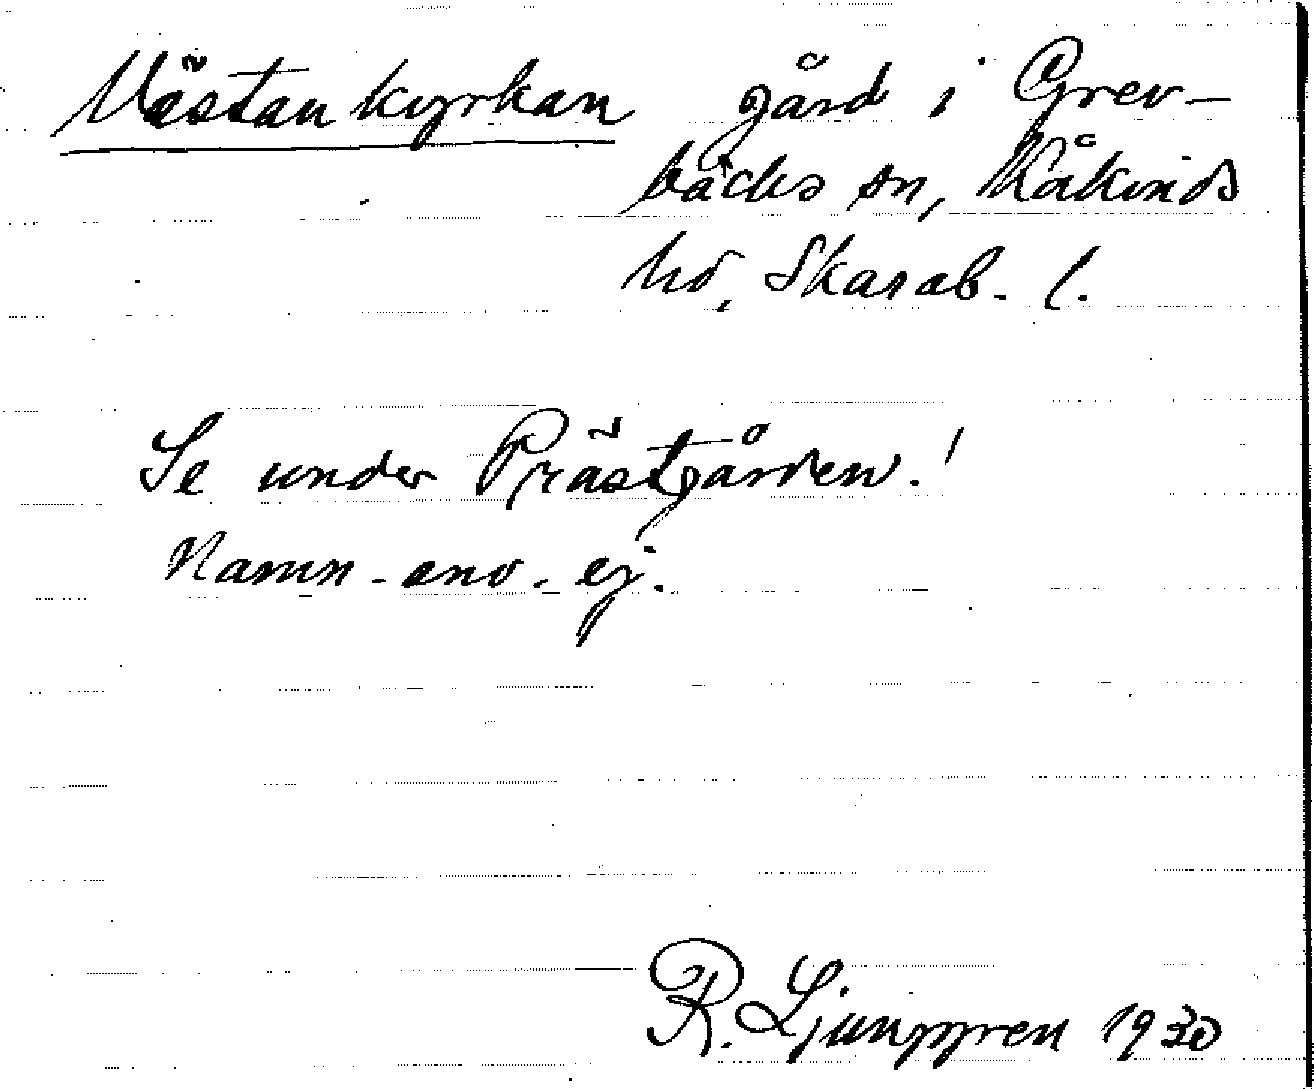 Västankyrkan gård i Grev-
bäcks sn, Kåkinds
hd, Skarab. l.
Se under Prästgården!
Namn - anv. ej.
R. Ljunggren 1930